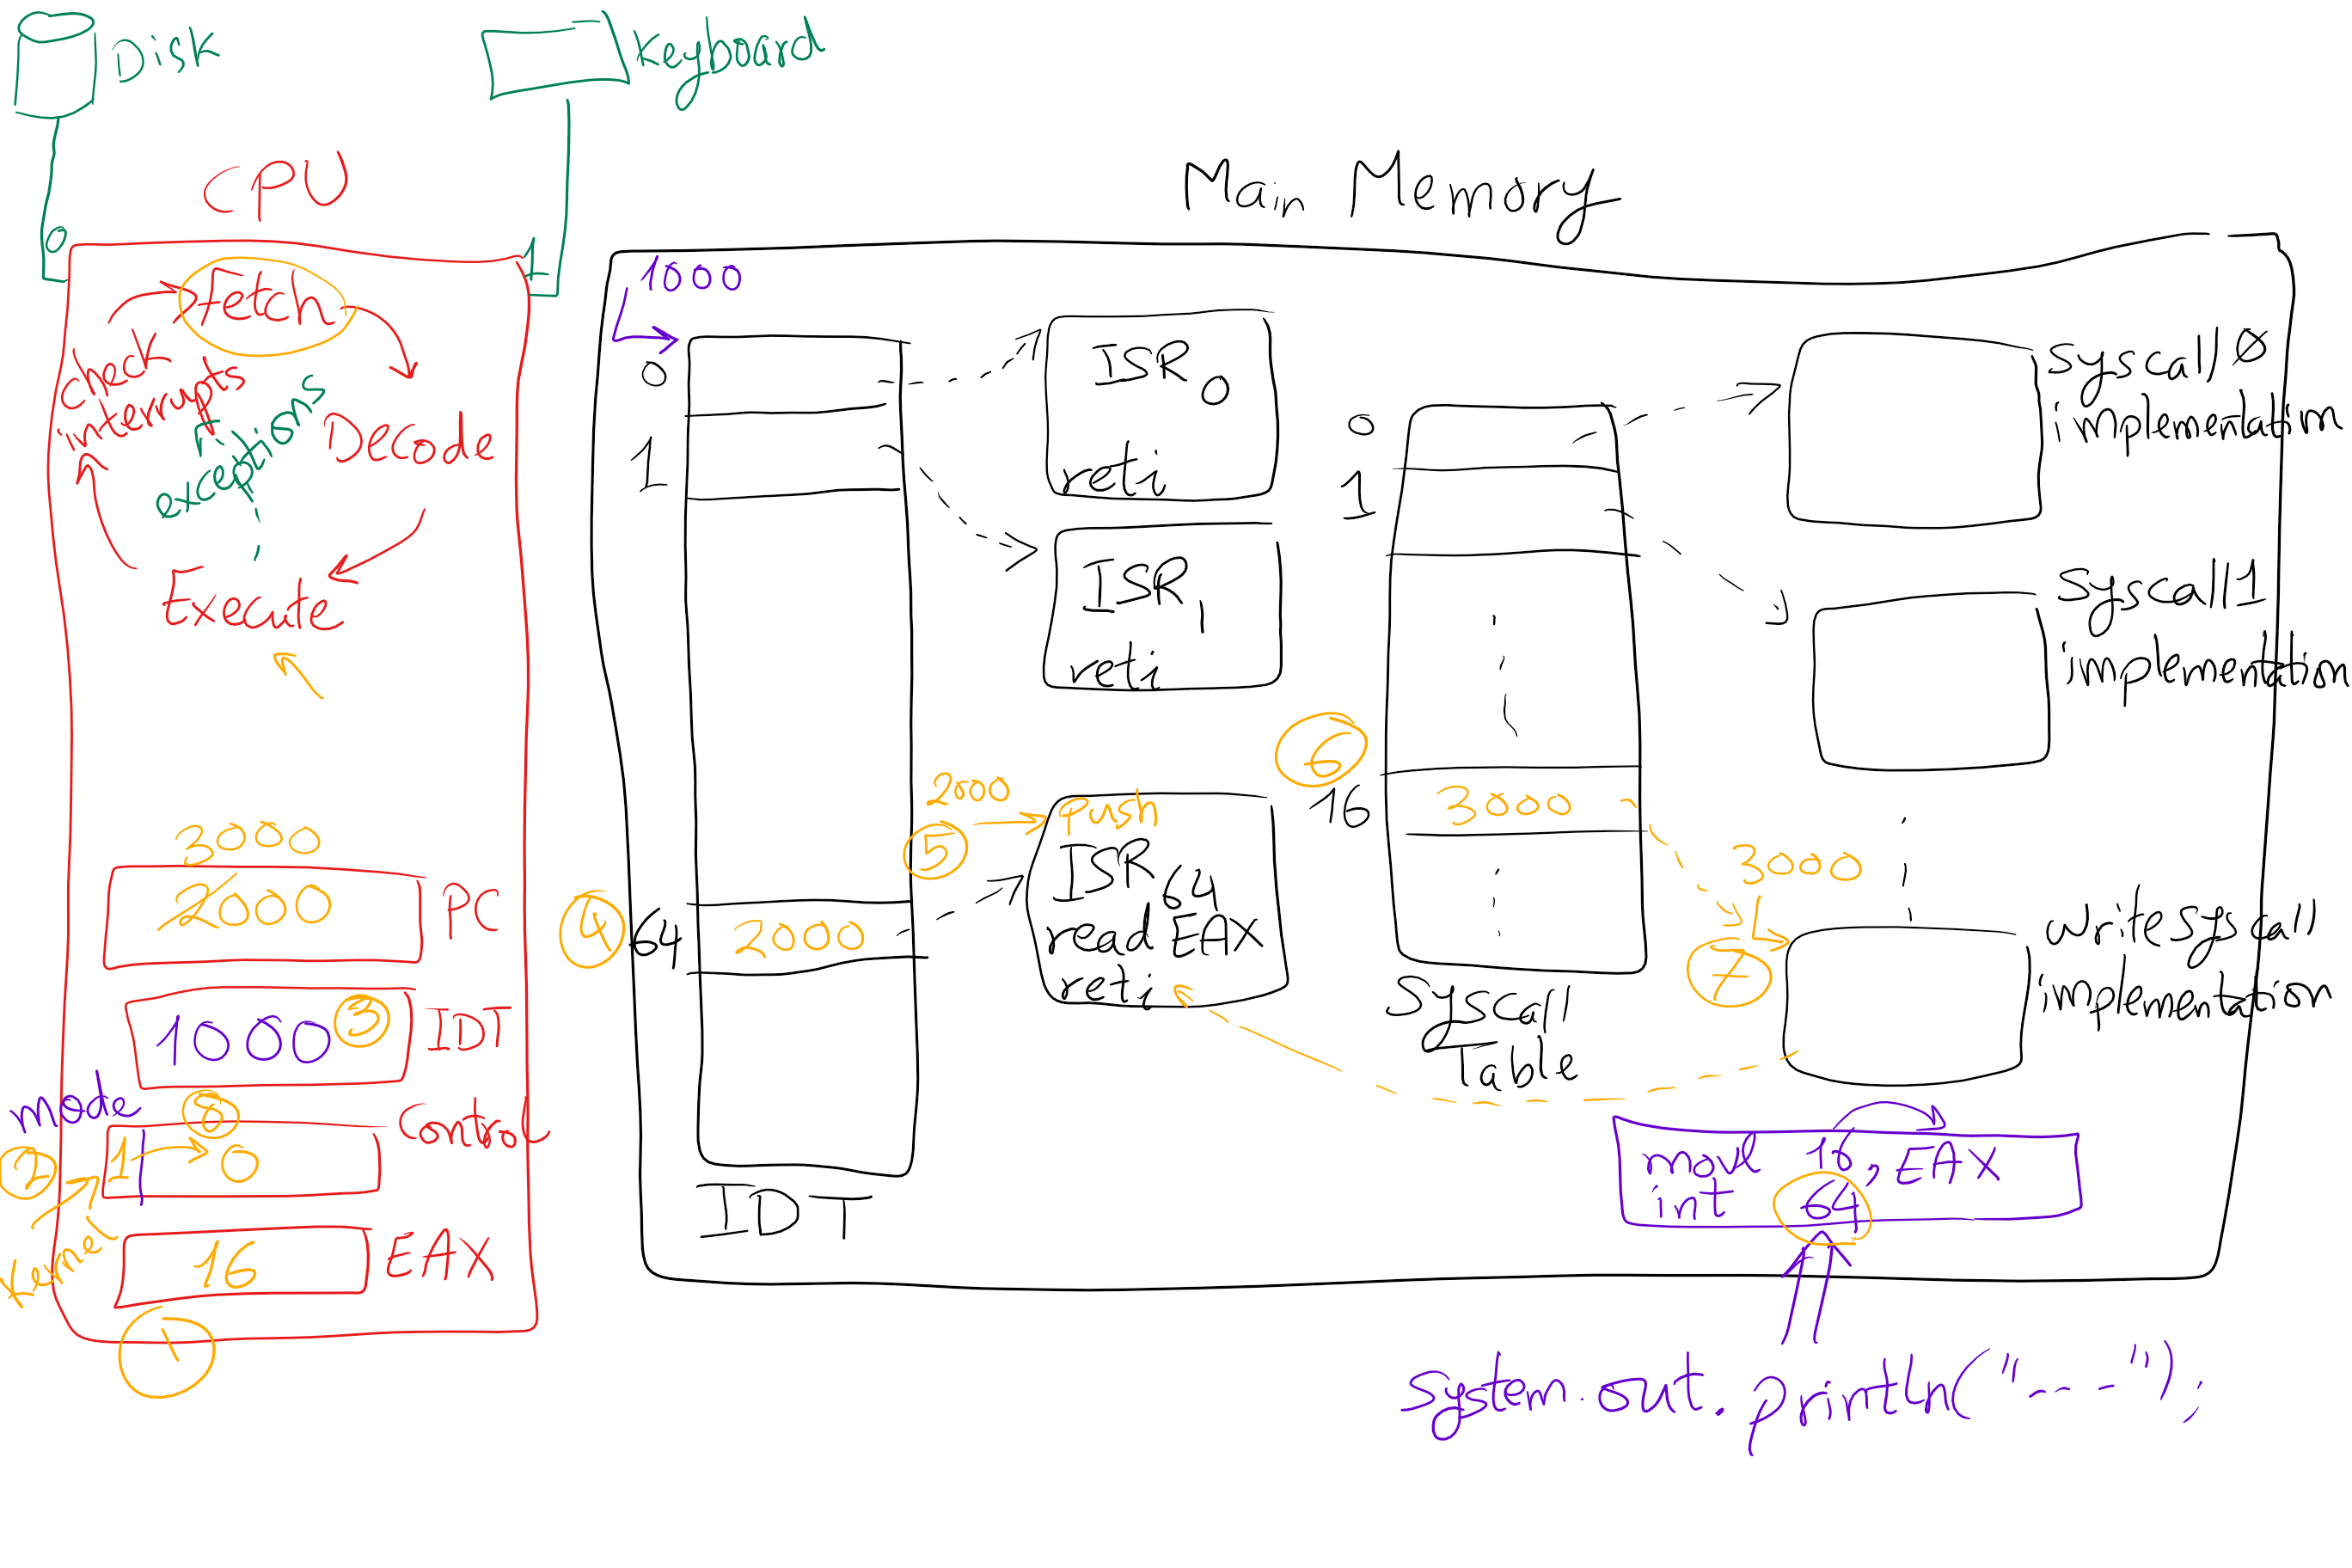 Disk
Keyboard
CPU
Main Memory
0
1
fetch
Decode
Execute
check
interrupts
exceptions
3000
2000
PC
1000
3
IDT
mode
8
Control
2
1
0
kernel
16
EAX
1
1000
0
1
4
64
2000
IDT
ISR0
reti
ISR1
reti
2000
5
push
ISR64
read EAX
reti
0
1
6
16
3000
Syscall
Table
Syscall 0
implementation
Syscall 1
implementation
3000
7
write syscall
implementation
movl 16, EAX
int 64
System.out.println("---");